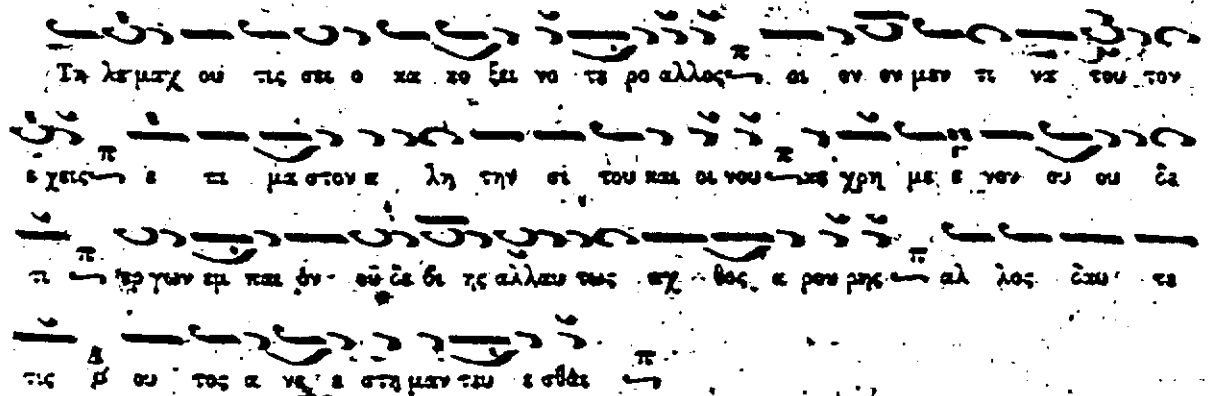 Τη λε μαχ ου τις σει ο κα κο ξει νο τε ρο αλλος π οι ον ον μεν τι να του τον
ε χεις π ε πι μα στον α λη την σι του και οι νου π κε χρη με ε νον ου ου δα
τι π ερ γων εμ παι ον ου δε βι ης αλλαυ τως αχ θος α ρου ρης π αλ λος δαυ τε
τις Δ ου τος α νε ε στη μαν τευ ε σθαι π